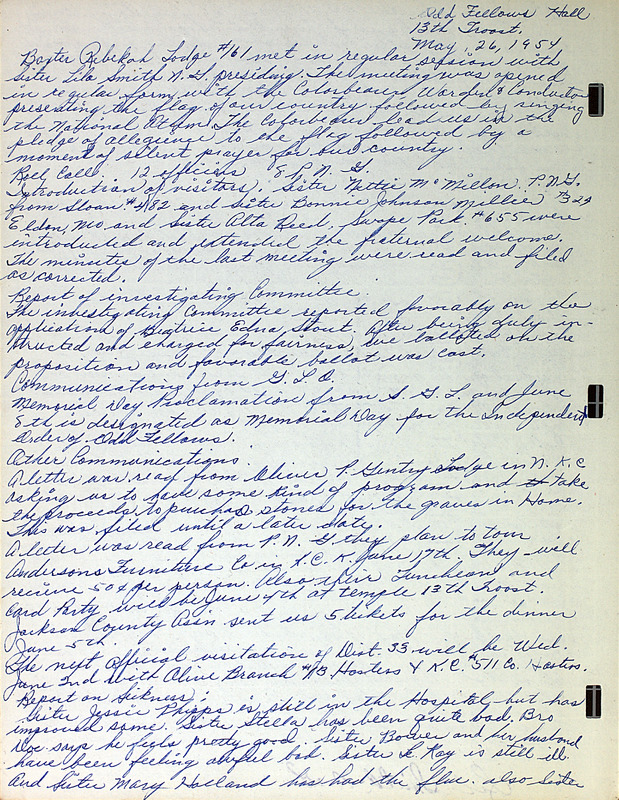 Odd Fellows Hall
13th Troost.
May, 26, 1954
Baxter Rebekah Lodge #161 met in regular session with
Sister Lila Smith N. G. presiding. The meeting was opened
in regular form with the Colorbearer, Warden & Conductor
presenting the flag of our country followed by singing
the National Athem. The Colorbearer lead us in the
pledge of allegience to the flag followed by a
moment of silent prayer for our country.
Roll Call. 12 officers 8 P. N. G.
Introduction of visitors. Sister Nettie McMillon, P. N. G.
from Sloan #482 and Sister Bonnie Johnson Millie #323
Eldon, Mo and Sister Alta Reed, Swope Park #655 were
introduced and extended the fraternal welcome.
The minutes of the last meeting were read and filed
as corrected.
Report of investigating Committee.
The investigating Committee reported favorably on the
application of Beatrice Edna Stout. After being duly in-
structed and charged for fairness, we balloted on the
proposition and favorable ballot was cast.
Communications from G. L. O.
Memorial Day Proclamation from S. G. L. and June
8th is designated as Memorial Day for the Independent
Order of Odd Fellows.
Other Communications.
A letter was read from Oliver P. Gentry Lodge in N. K. C
asking us to have some kind of program and take
the proceeds to purchase stones for the graves in Home.
This was filed until a later date.
A letter was read from P. N. G they plan to tour
Andersons Furniture Co in K. C. K. June 17th. They will
receive 50¢ per person. Also their Luncheon and
card Party will be June 4th at temple 13th Troost.
Jackson County Assn sent us 5 tickets for the dinner
June 5th.
The next official visitation of Dist. 33 will be Wed.
June 2nd with Olive Branch #13 Hosters & K. C. #511 Co. Hosters.
Report on Sickness;
Sister Jessie Phipps is still in the Hospital, but has
improved some. Sister Stella has been quite bad. Bro
Doc says he feels pretty good Sister Bower and her husband
have been feeling awful bad. Sister L. Kay is still ill.
And Sister Mary Holland has had the flue. also Sister